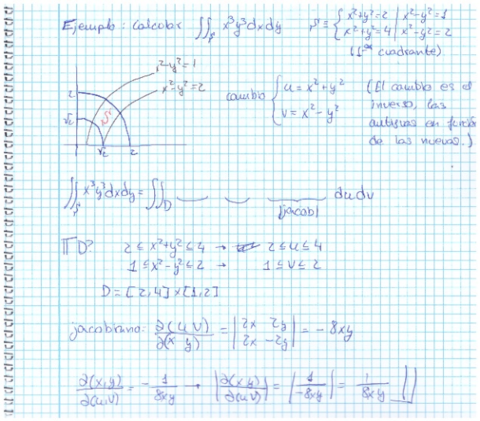 Ejemplo: calcular ∬_S x³y³dxdy S = { x²+y²=2 | x²-y²=1
x²+y²=4 | x²-y²=2
(1er cuadrante)
x²-y²=1
x²-y²=2
2
√2
S
1 √2 2
cambio { u = x²+y²
v = x²-y²
(El cambio es el
inverso, las
antiguas en función
de las nuevas.)
∬_S x³y³dxdy = ∬_D dudv
|jacob|
D? 2 ≤ x²+y² ≤ 4 → 2 ≤ u ≤ 4
1 ≤ x²-y² ≤ 2 → 1 ≤ v ≤ 2
D = [2,4]×[1,2]
jacobiano: ∂(u,v)/∂(x,y) = |2x 2y; 2x -2y| = -8xy
∂(x,y)/∂(u,v) = -1/8xy → |∂(x,y)/∂(u,v)| = |1/-8xy| = 1/8xy